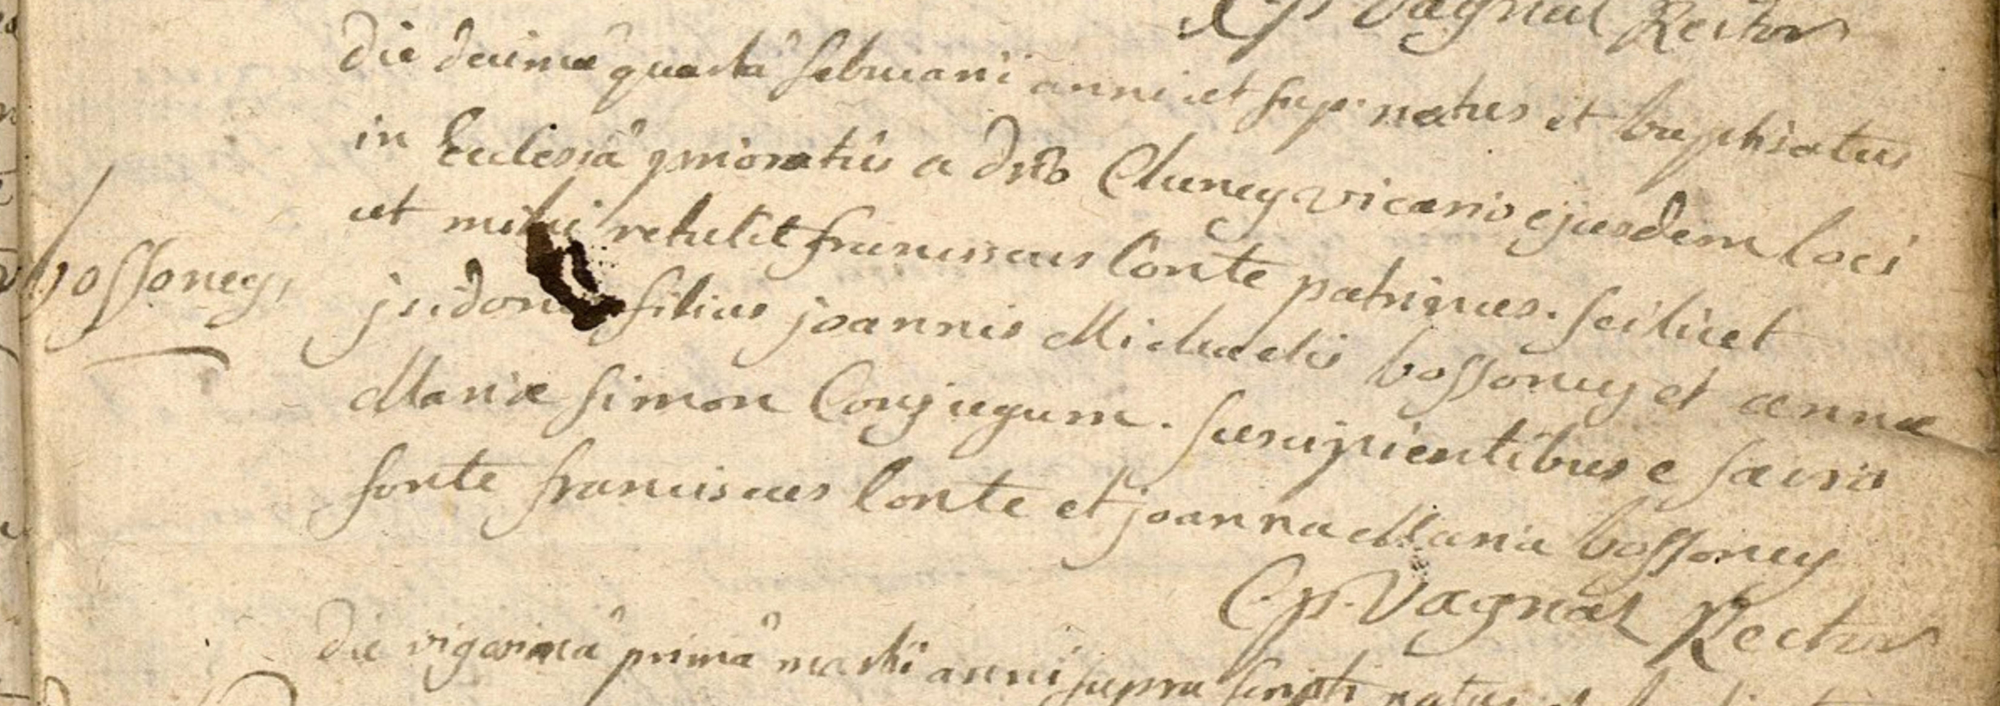 Cp. Vagnat Rector
Die decimâ quartâ februarii anni ut sup. natus et baptisatus
in Ecclesiâ prioratûs a dno Cluney vicario ejusdem loci
ut mihi retulit franciscus Conte patrinus. scilicet
bossoney,
isidorus filius joannis Michaelis bossoney et annæ
Mariæ simon Conjugum. suscipientibus e sacro
fonte franciscus Conte et joanna Maria bossoney
Cp. Vagnat Rector
Die vigesimâ primâ martii anni supra scripti natus et